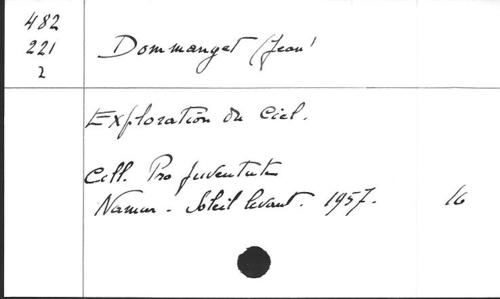 482
221
2
Dommanget (Jean)
Exploration du Ciel.
Coll. Pro Juventute
Namur - Soleil levant. 1957. 16